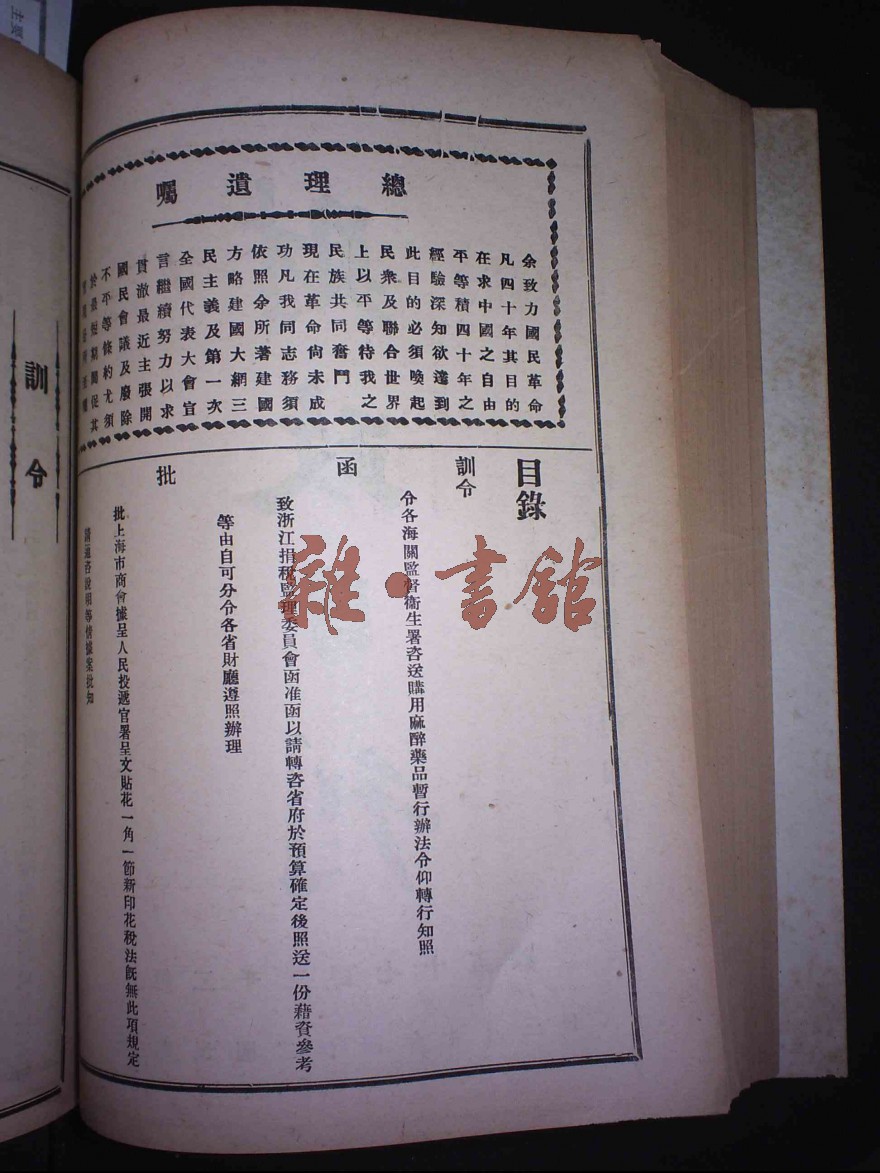 總理遺囑
余致力國民革命
凡四十年其目的
在求中國之自由
平等積四十年之
經驗深知欲達到
此目的必須喚起
民衆及聯合世界
上以平等待我之
民族共同奮鬥
現在革命尚未成
功凡我同志務須
依照余所著建國
方略建國大綱三
民主義及第一次
全國代表大會宣
言繼續努力以求
貫澈最近主張開
國民會議及廢除
不平等條約尤須
於最短期間促其
目錄
訓令
令各海關監督衛生署咨送購用麻醉藥品暫行辦法令仰轉行知照
函
致浙江捐稅監理委員會函准函以請轉咨省府於預算確定後照送一份藉資參考
等由自可分令各省財廳遵照辦理
批
批上海市商會據呈人民投遞官署呈文貼花一角一節新印花稅法既無此項規定
訓令
雜·書館